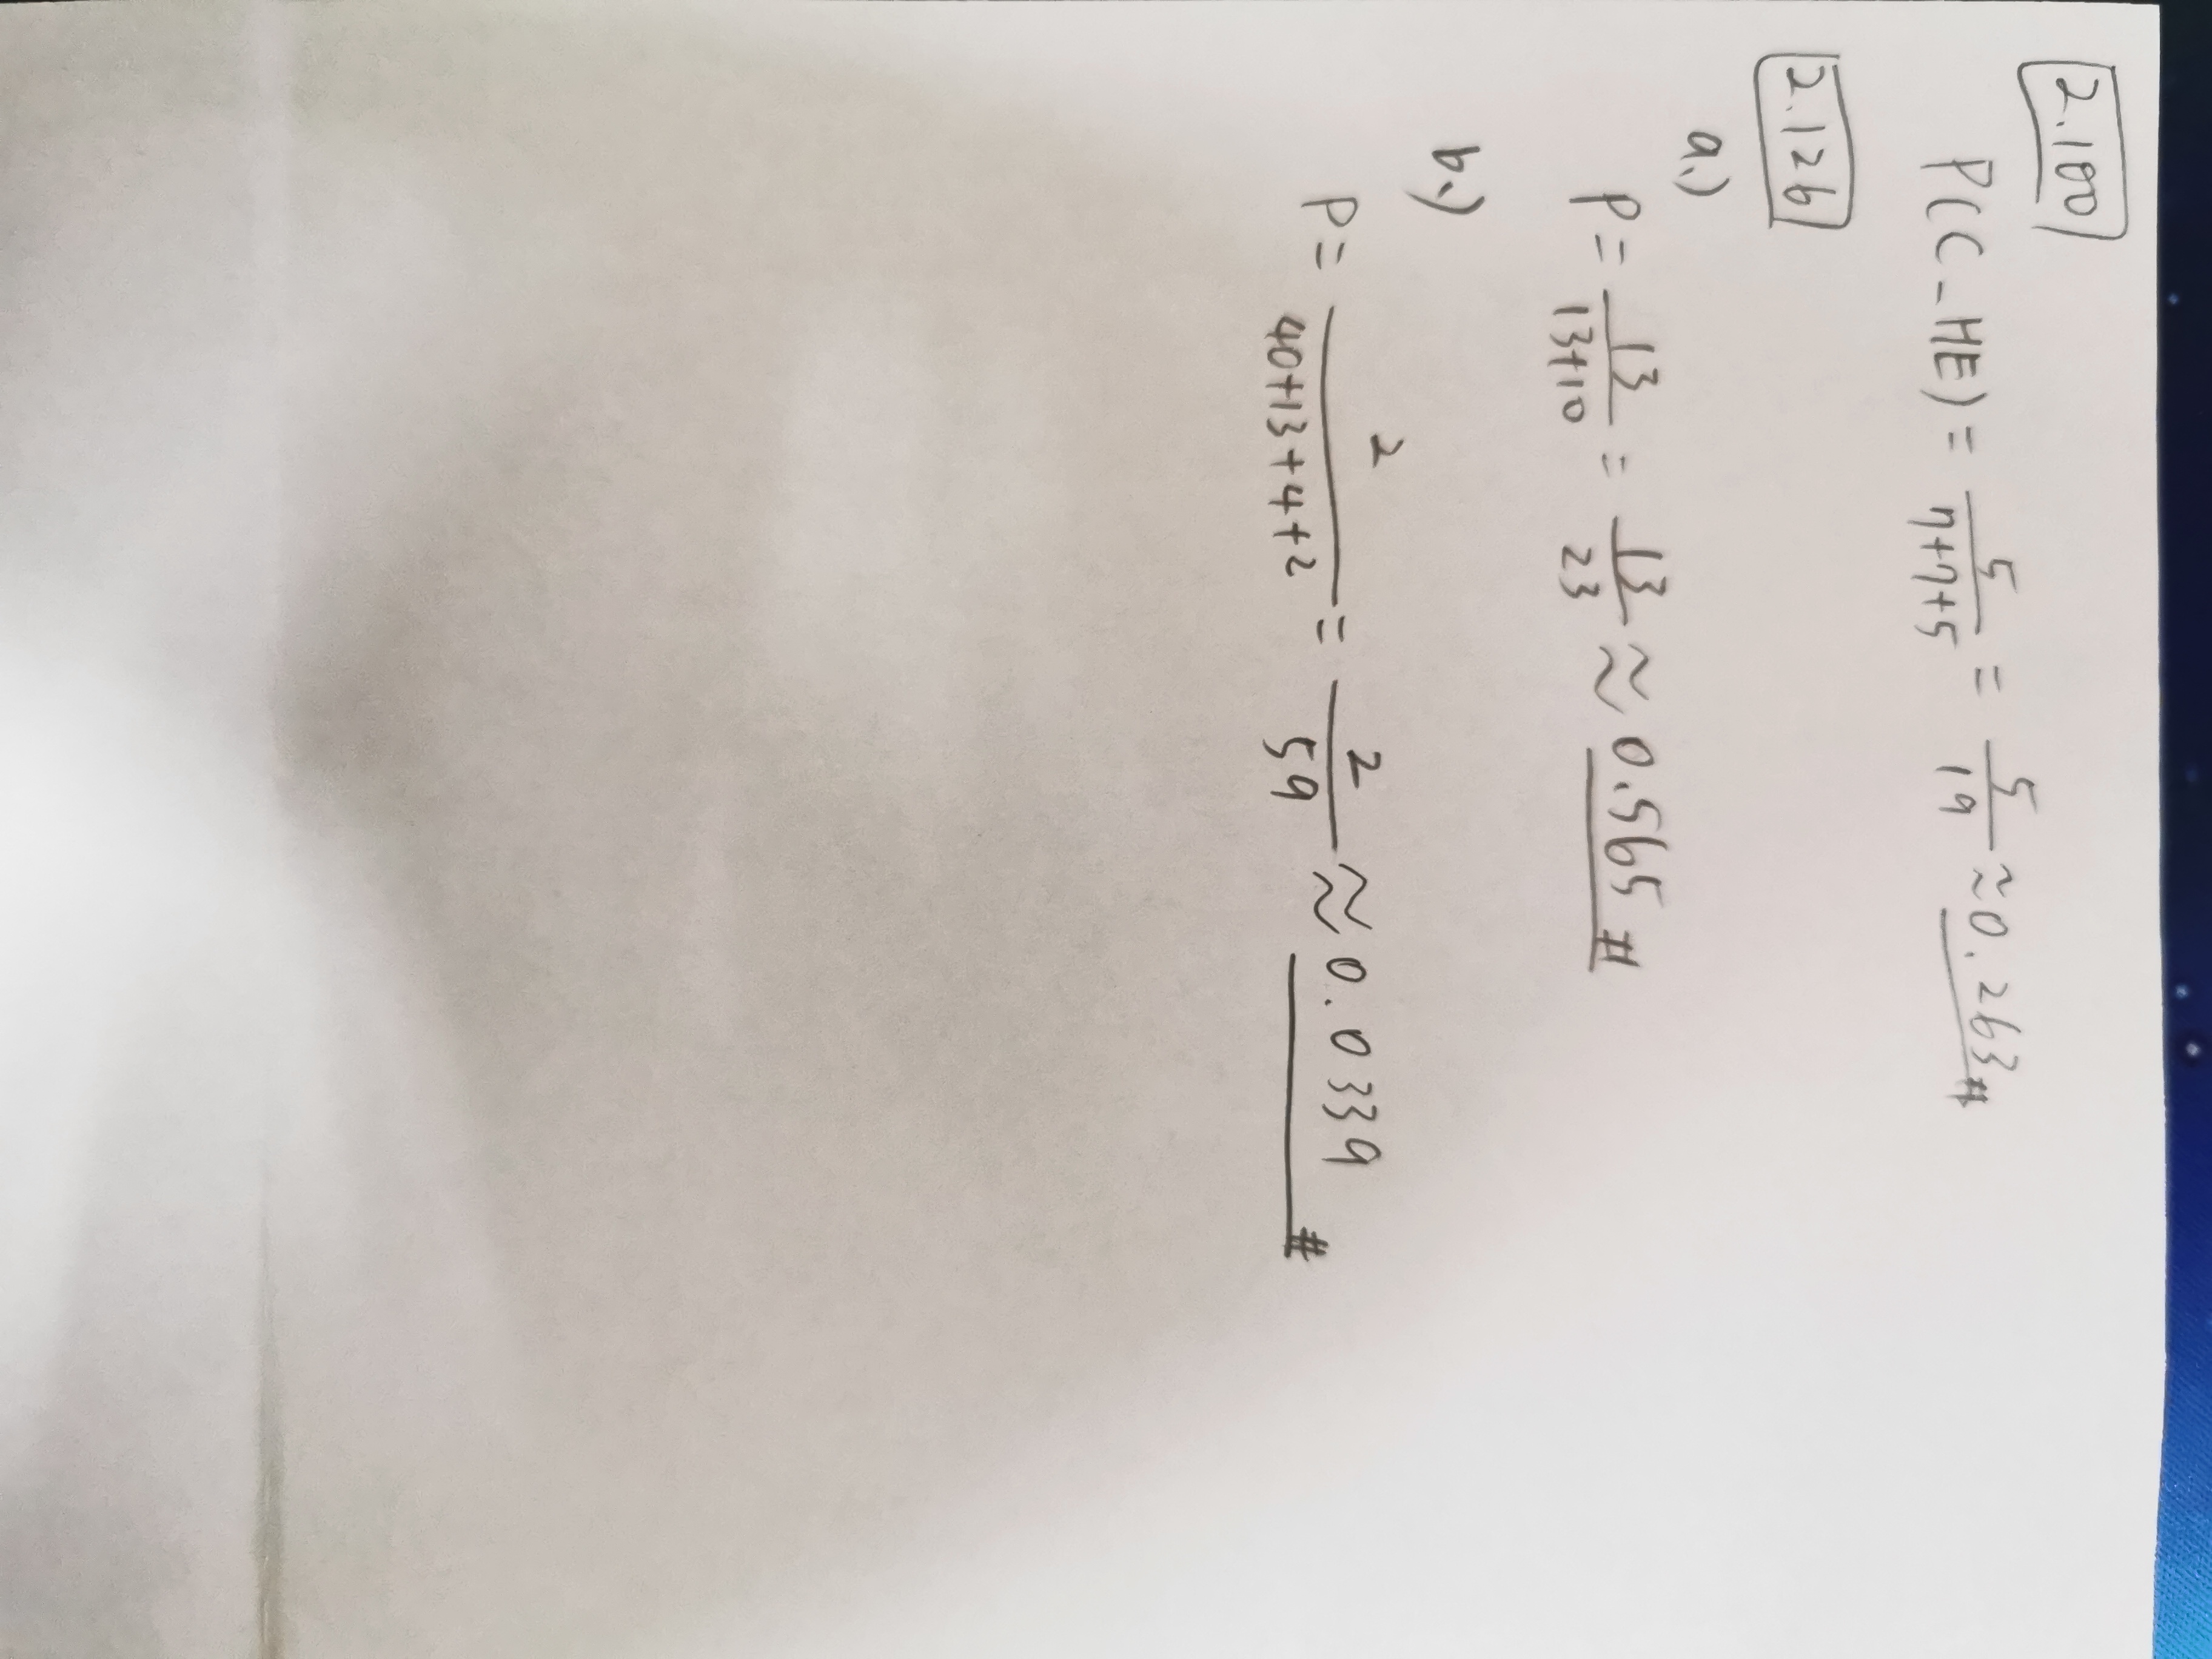 2.100
P(C-HE) = 5/(7+7+5) = 5/19 ≈ 0.263 #
2.126
a.)
P = 13/(13+10) = 13/23 ≈ 0.565 #
b.)
P = 2/(40+13+4+2) = 2/59 ≈ 0.0339 #